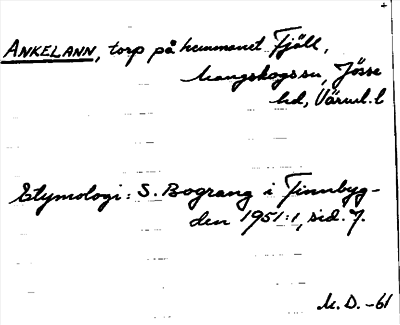 ANKELANN, torp på hemmanet Fjäll,
Mangskogs sn, Jösse
hd, Värml. l
Etymologi: S. Bograng i Finnbyg-
den 1951:1, sid. 7.
M. D. -61